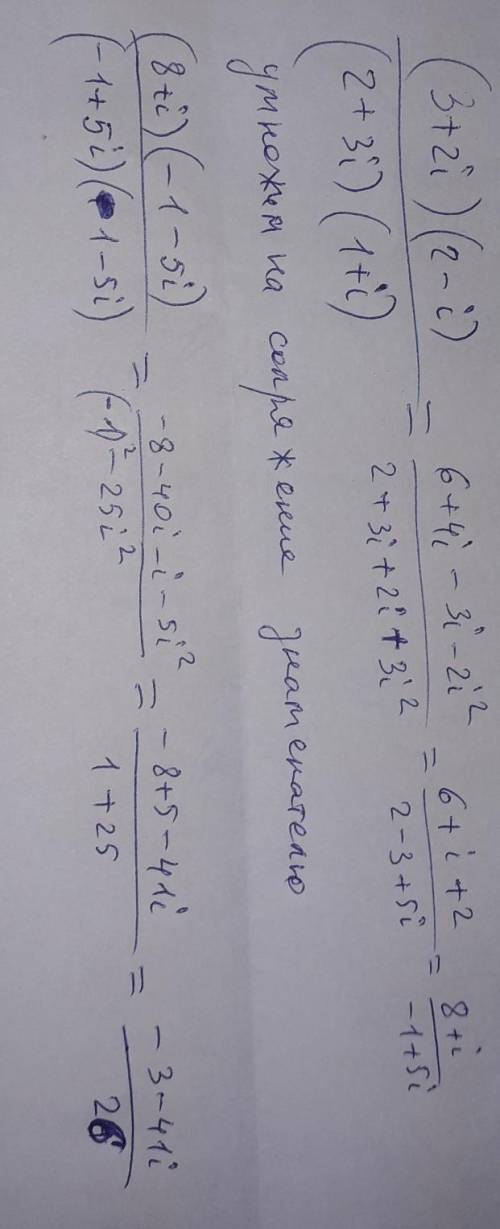 (3+2i)(2-i) / (2+3i)(1+i) = 6+4i-3i-2i² / 2+3i+2i+3i² = 6+i+2 / 2-3+5i = 8+i / -1+5i
умножим на сопряжение знаменателю
(8+i)(-1-5i) / (-1+5i)(-1-5i) = -8-40i-i-5i² / (-1)²-25i² = -8+5-41i / 1+25 = -3-41i / 26